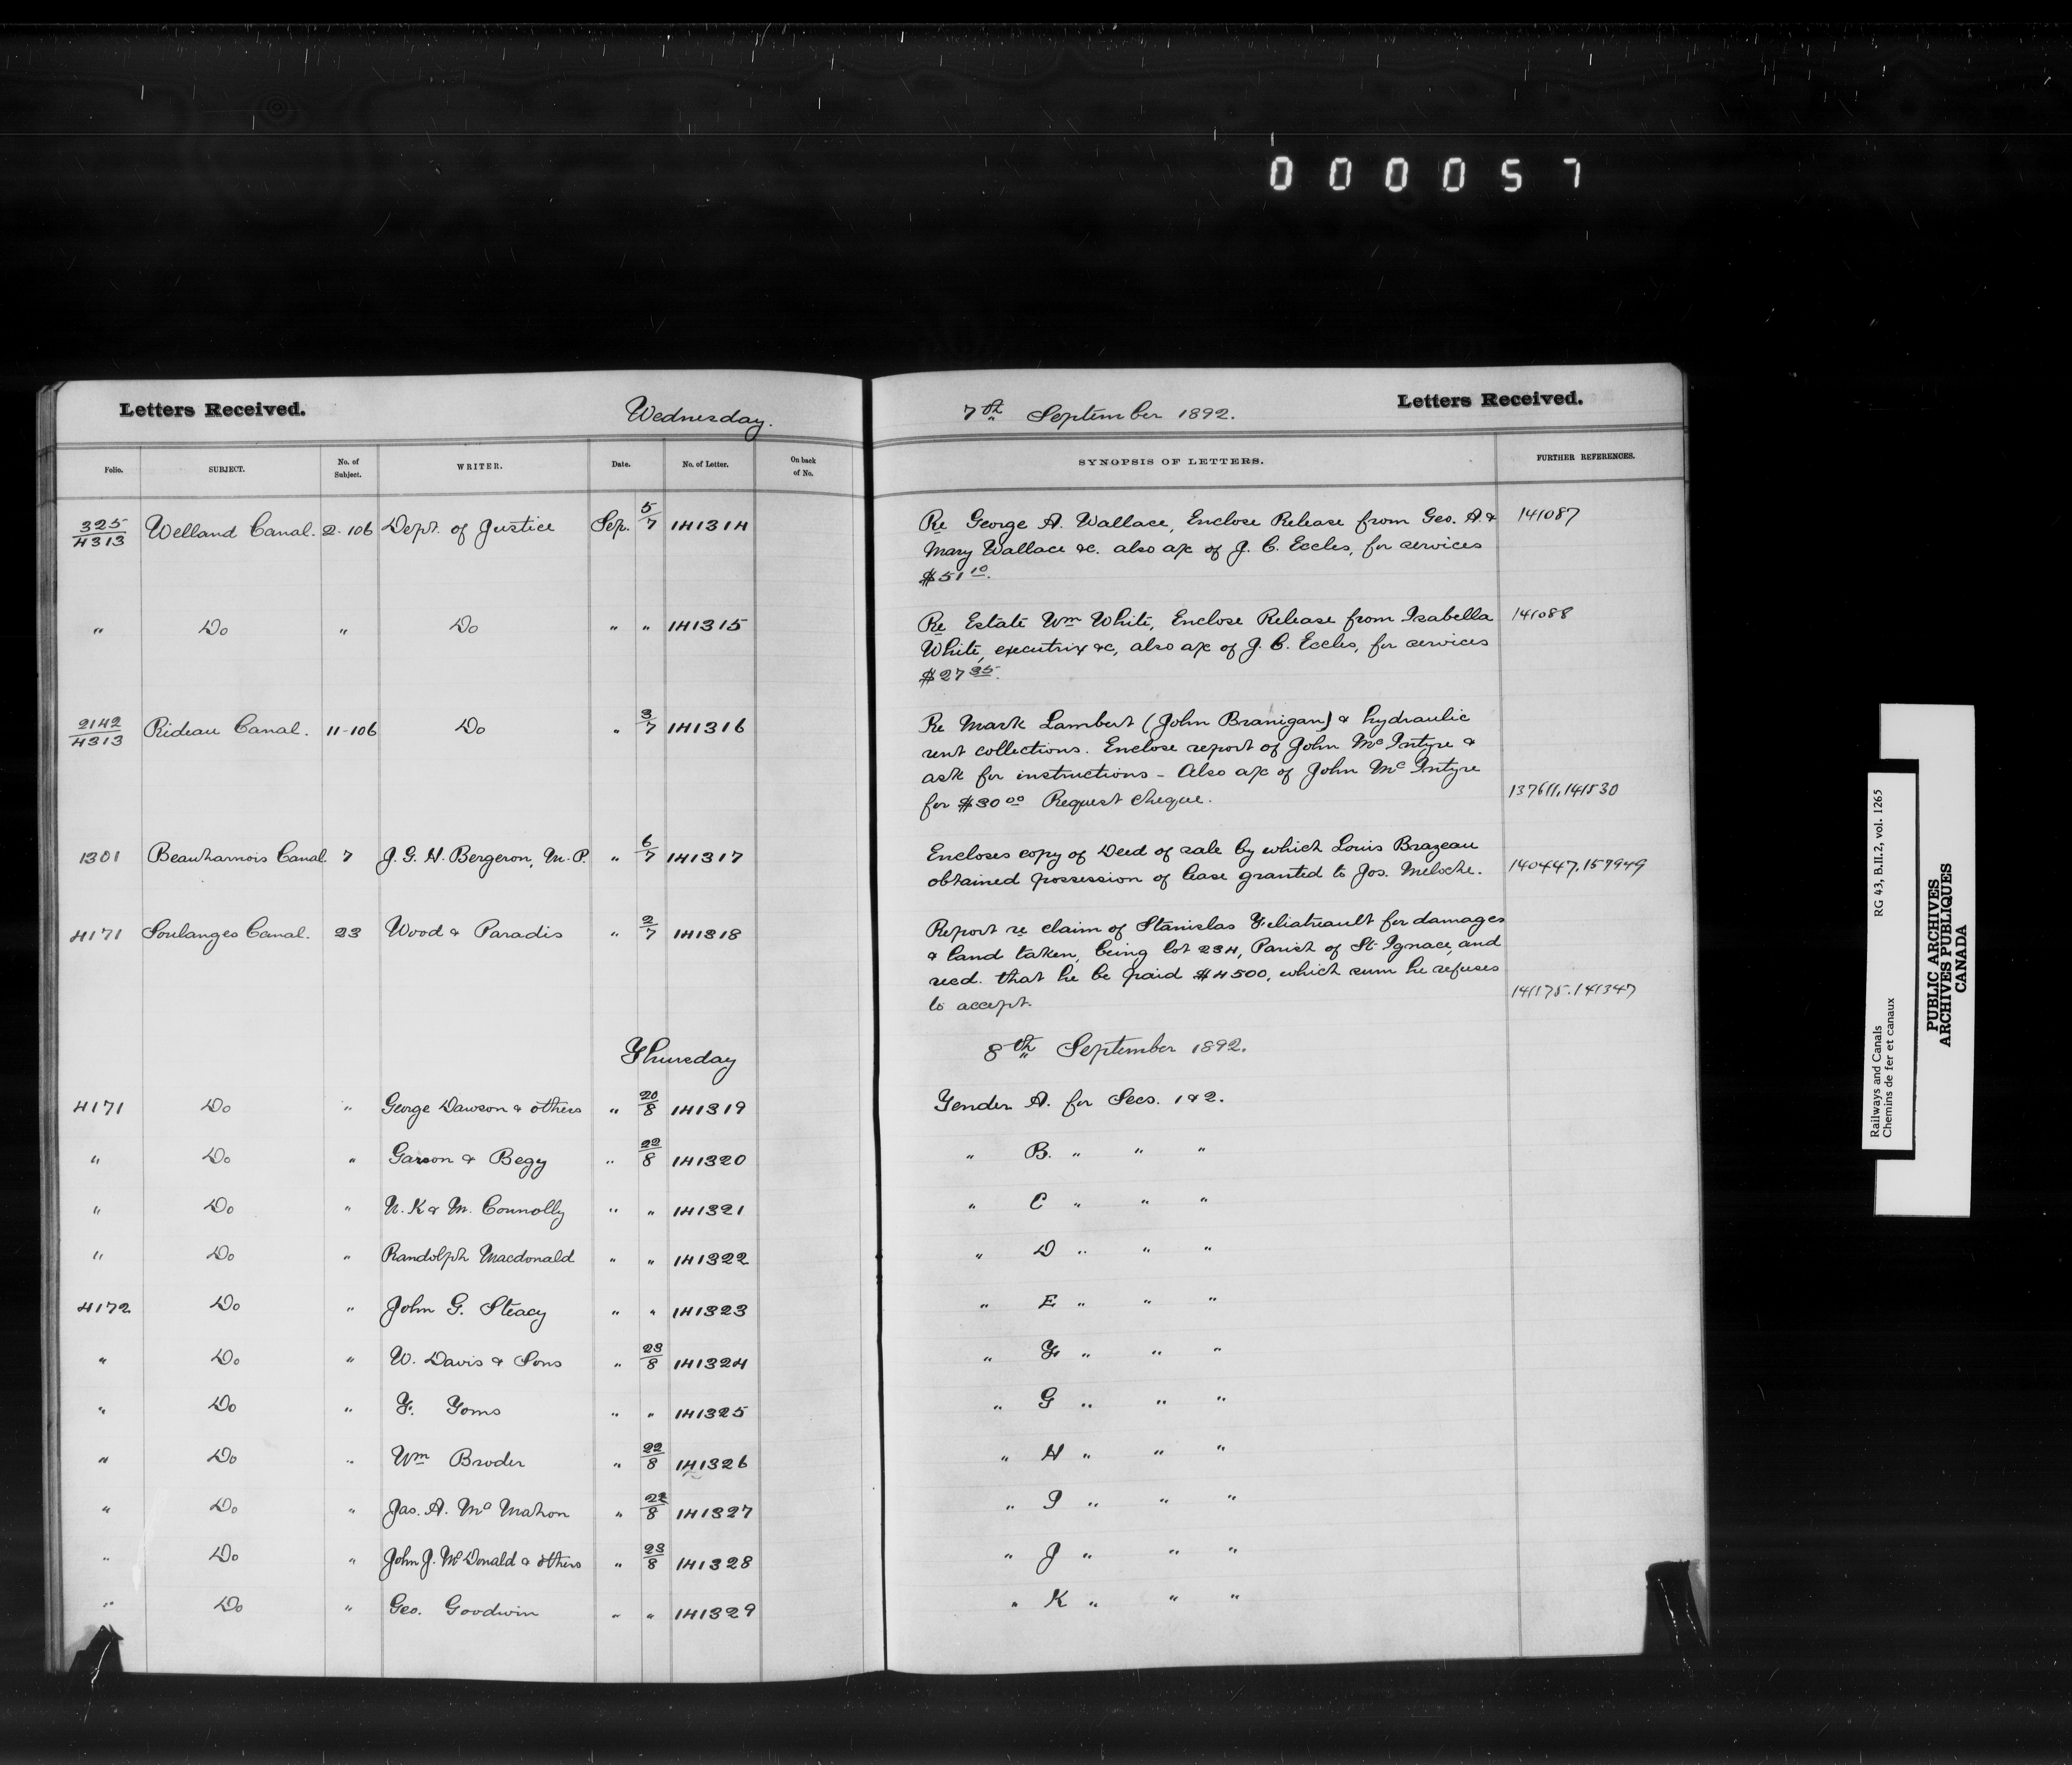 0 0 0 0 5 7
Letters Received. Wednesday. 7th September 1892. Letters Received.
Folio. SUBJECT. No. of Subject. WRITER. Date. No. of Letter. On back of No. SYNOPSIS OF LETTERS. FURTHER REFERENCES.
325/4313 Welland Canal. 2-106 Dept. of Justice Sep. 5/7 141314 Re George A. Wallace, Enclose Release from Geo. A. & 141087
Mary Wallace &c. also a/c of J. C. Eccles, for services
$51 10.
" Do " Do " " 141315 Re Estate Wm White, Enclose Release from Isabella 141088
White, executrix &c, also a/c of J. C. Eccles, for services
$27 35.
2142/4313 Rideau Canal. 11-106 Do " 3/7 141316 Re Mark Lambert (John Branigan) & hydraulic
rent collections. Enclose report of John McIntyre &
ask for instructions - Also a/c of John McIntyre
for $30 00 Request cheque. 137611, 141530
1301 Beauharnois Canal 7 J. G. H. Bergeron, M.P. " 6/7 141317 Encloses copy of Deed of sale by which Louis Brazeau
obtained possession of lease granted to Jos. Meloche. 140447, 157949
4171 Soulanges Canal. 23 Wood & Paradis " 2/7 141318 Report re claim of Stanislas Feliatreault for damages
& land taken, being lot 234, Parish of St. Ignace, and
recd. that he be paid $4500, which sum he refuses
to accept. 141175. 141347
Thursday 8th September 1892.
4171 Do " George Dawson & others " 20/8 141319 Tender A. for Secs. 1 & 2.
" Do " Garson & Begy " 22/8 141320 " B. " " "
" Do " N. K & M. Connolly " " 141321 " C " " "
" Do " Randolph Macdonald " " 141322 " D " " "
4172 Do " John G. Steacy " " 141323 " E " " "
" Do " W. Davis & Sons " 23/8 141324 " F " " "
" Do " F. Toms " " 141325 " G " " "
" Do " Wm Broder " 22/8 141326 " H " " "
" Do " Jas. A. McMahon " 22/8 141327 " I " " "
" Do " John J. McDonald & others " 23/8 141328 " J " " "
" Do " Geo. Goodwin " " 141329 " K " " "
Railways and Canals RG 43, B.II.2, vol. 1265
Chemins de fer et canaux
PUBLIC ARCHIVES
ARCHIVES PUBLIQUES
CANADA